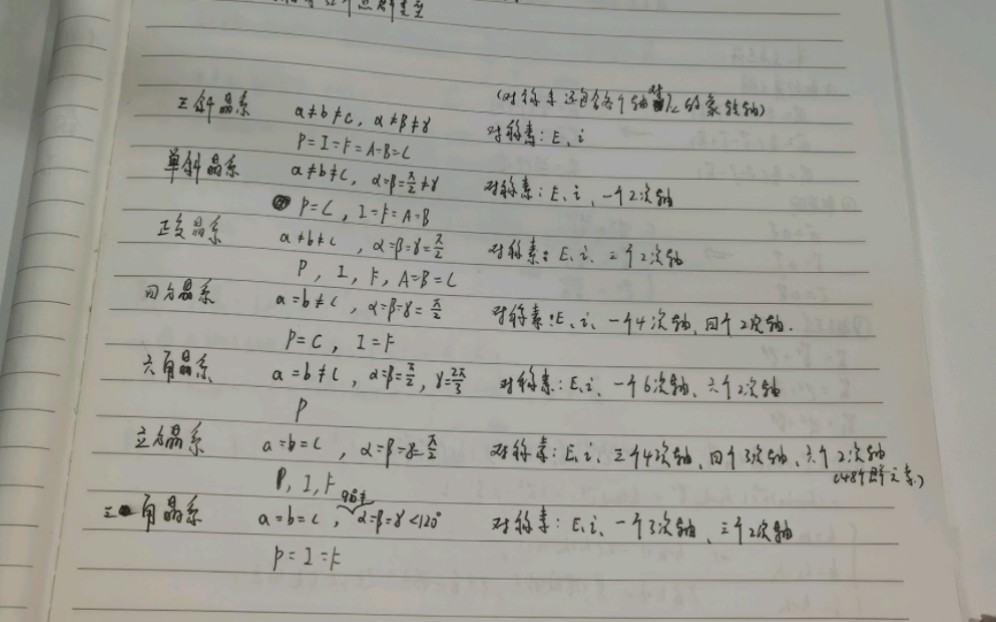 (对称素还包含各个轴对应的象转轴)
三斜晶系 a≠b≠c, α≠β≠γ 对称素: E, i
P=I=F=A=B=C
单斜晶系 a≠b≠c, α=β=π/2≠γ 对称素: E、i、一个2次轴
P=C, I=F=A=B
正交晶系 a≠b≠c, α=β=γ=π/2 对称素: E、i、三个2次轴
P, I, F, A=B=C
四方晶系 a=b≠c, α=β=γ=π/2 对称素: E、i、一个4次轴、四个2次轴.
P=C, I=F
六角晶系 a=b≠c, α=β=π/2, γ=2π/3 对称素: E、i、一个6次轴、六个2次轴
P
立方晶系 a=b=c, α=β=γ=π/2 对称素: E、i、三个4次轴、四个3次轴、六个2次轴
(48个群元素)
P, I, F
三角晶系 a=b=c, 90°≠α=β=γ<120° 对称素: E、i、一个3次轴、三个2次轴
P=I=F